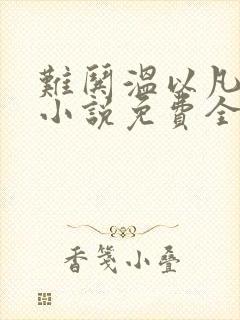 難鬨溫以凡
小說免費全
香箋小疊